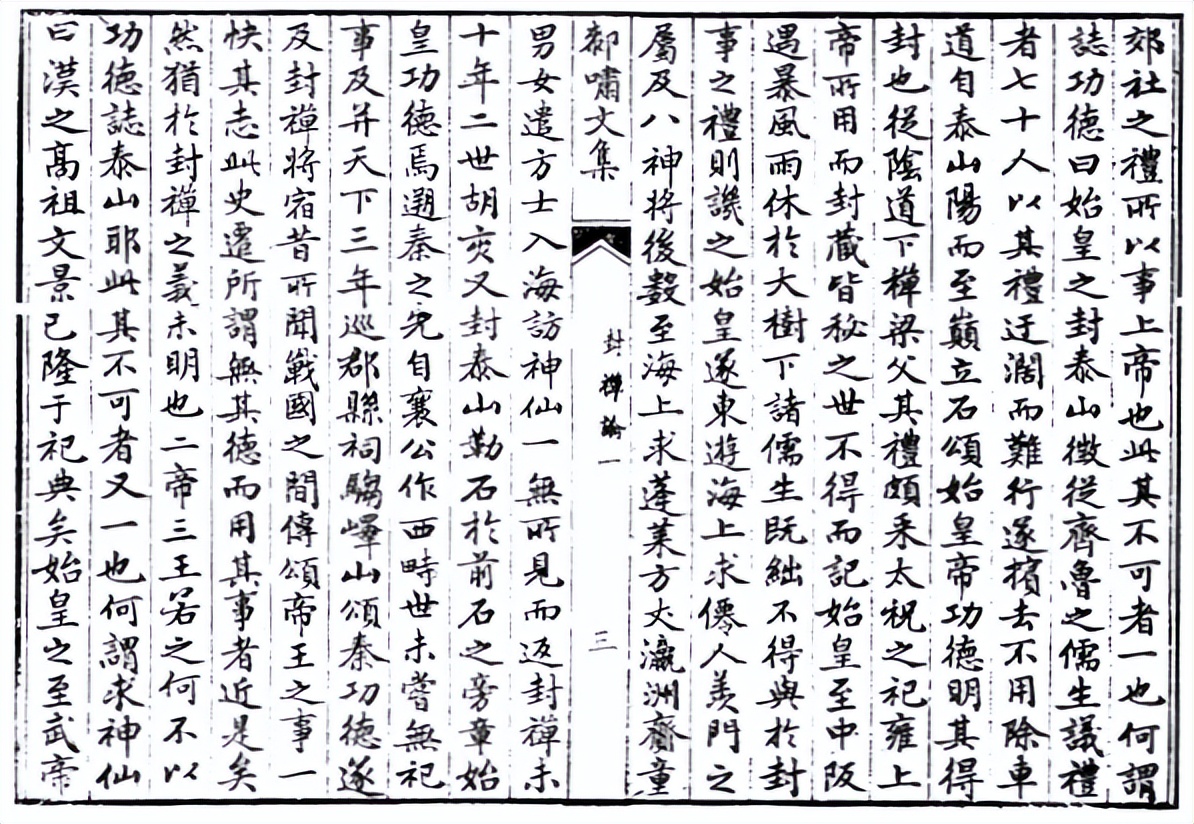 郊社之禮所以事上帝也此其不可者一也何謂
誌功德曰始皇之封泰山徵從齊魯之儒生議禮
者七十人以其禮迂濶而難行遂擯去不用除車
道自泰山陽而至巔立石頌始皇帝功德明其得
封也從陰道下禪梁父其禮頗釆太祝之祀雍上
帝所用而封藏皆秘之世不得而記始皇至中阪
遇暴風雨休於大樹下諸儒生既絀不得與於封
事之禮則譏之始皇遂東遊海上求僊人羨門之
屬及八神將後數至海上求蓬萊方丈瀛洲齎童
郝嘯文集
封禪論一
三
男女遣方士入海訪神仙一無所見而返封禪未
十年二世胡亥又封泰山勒石於前石之旁章始
皇功德焉遡秦之先自襄公作西畤世未嘗無祀
事及并天下三年巡郡縣祠騶嶧山頌秦功德遂
及封禪將宿昔所聞戰國之間傳頌帝王之事一
快其志此史遷所謂無其德而用其事者近是矣
然猶於封禪之義未明也二帝三王若之何不以
功德誌泰山耶此其不可者又一也何謂求神仙
曰漢之高祖文景已隆于祀典矣始皇之至武帝